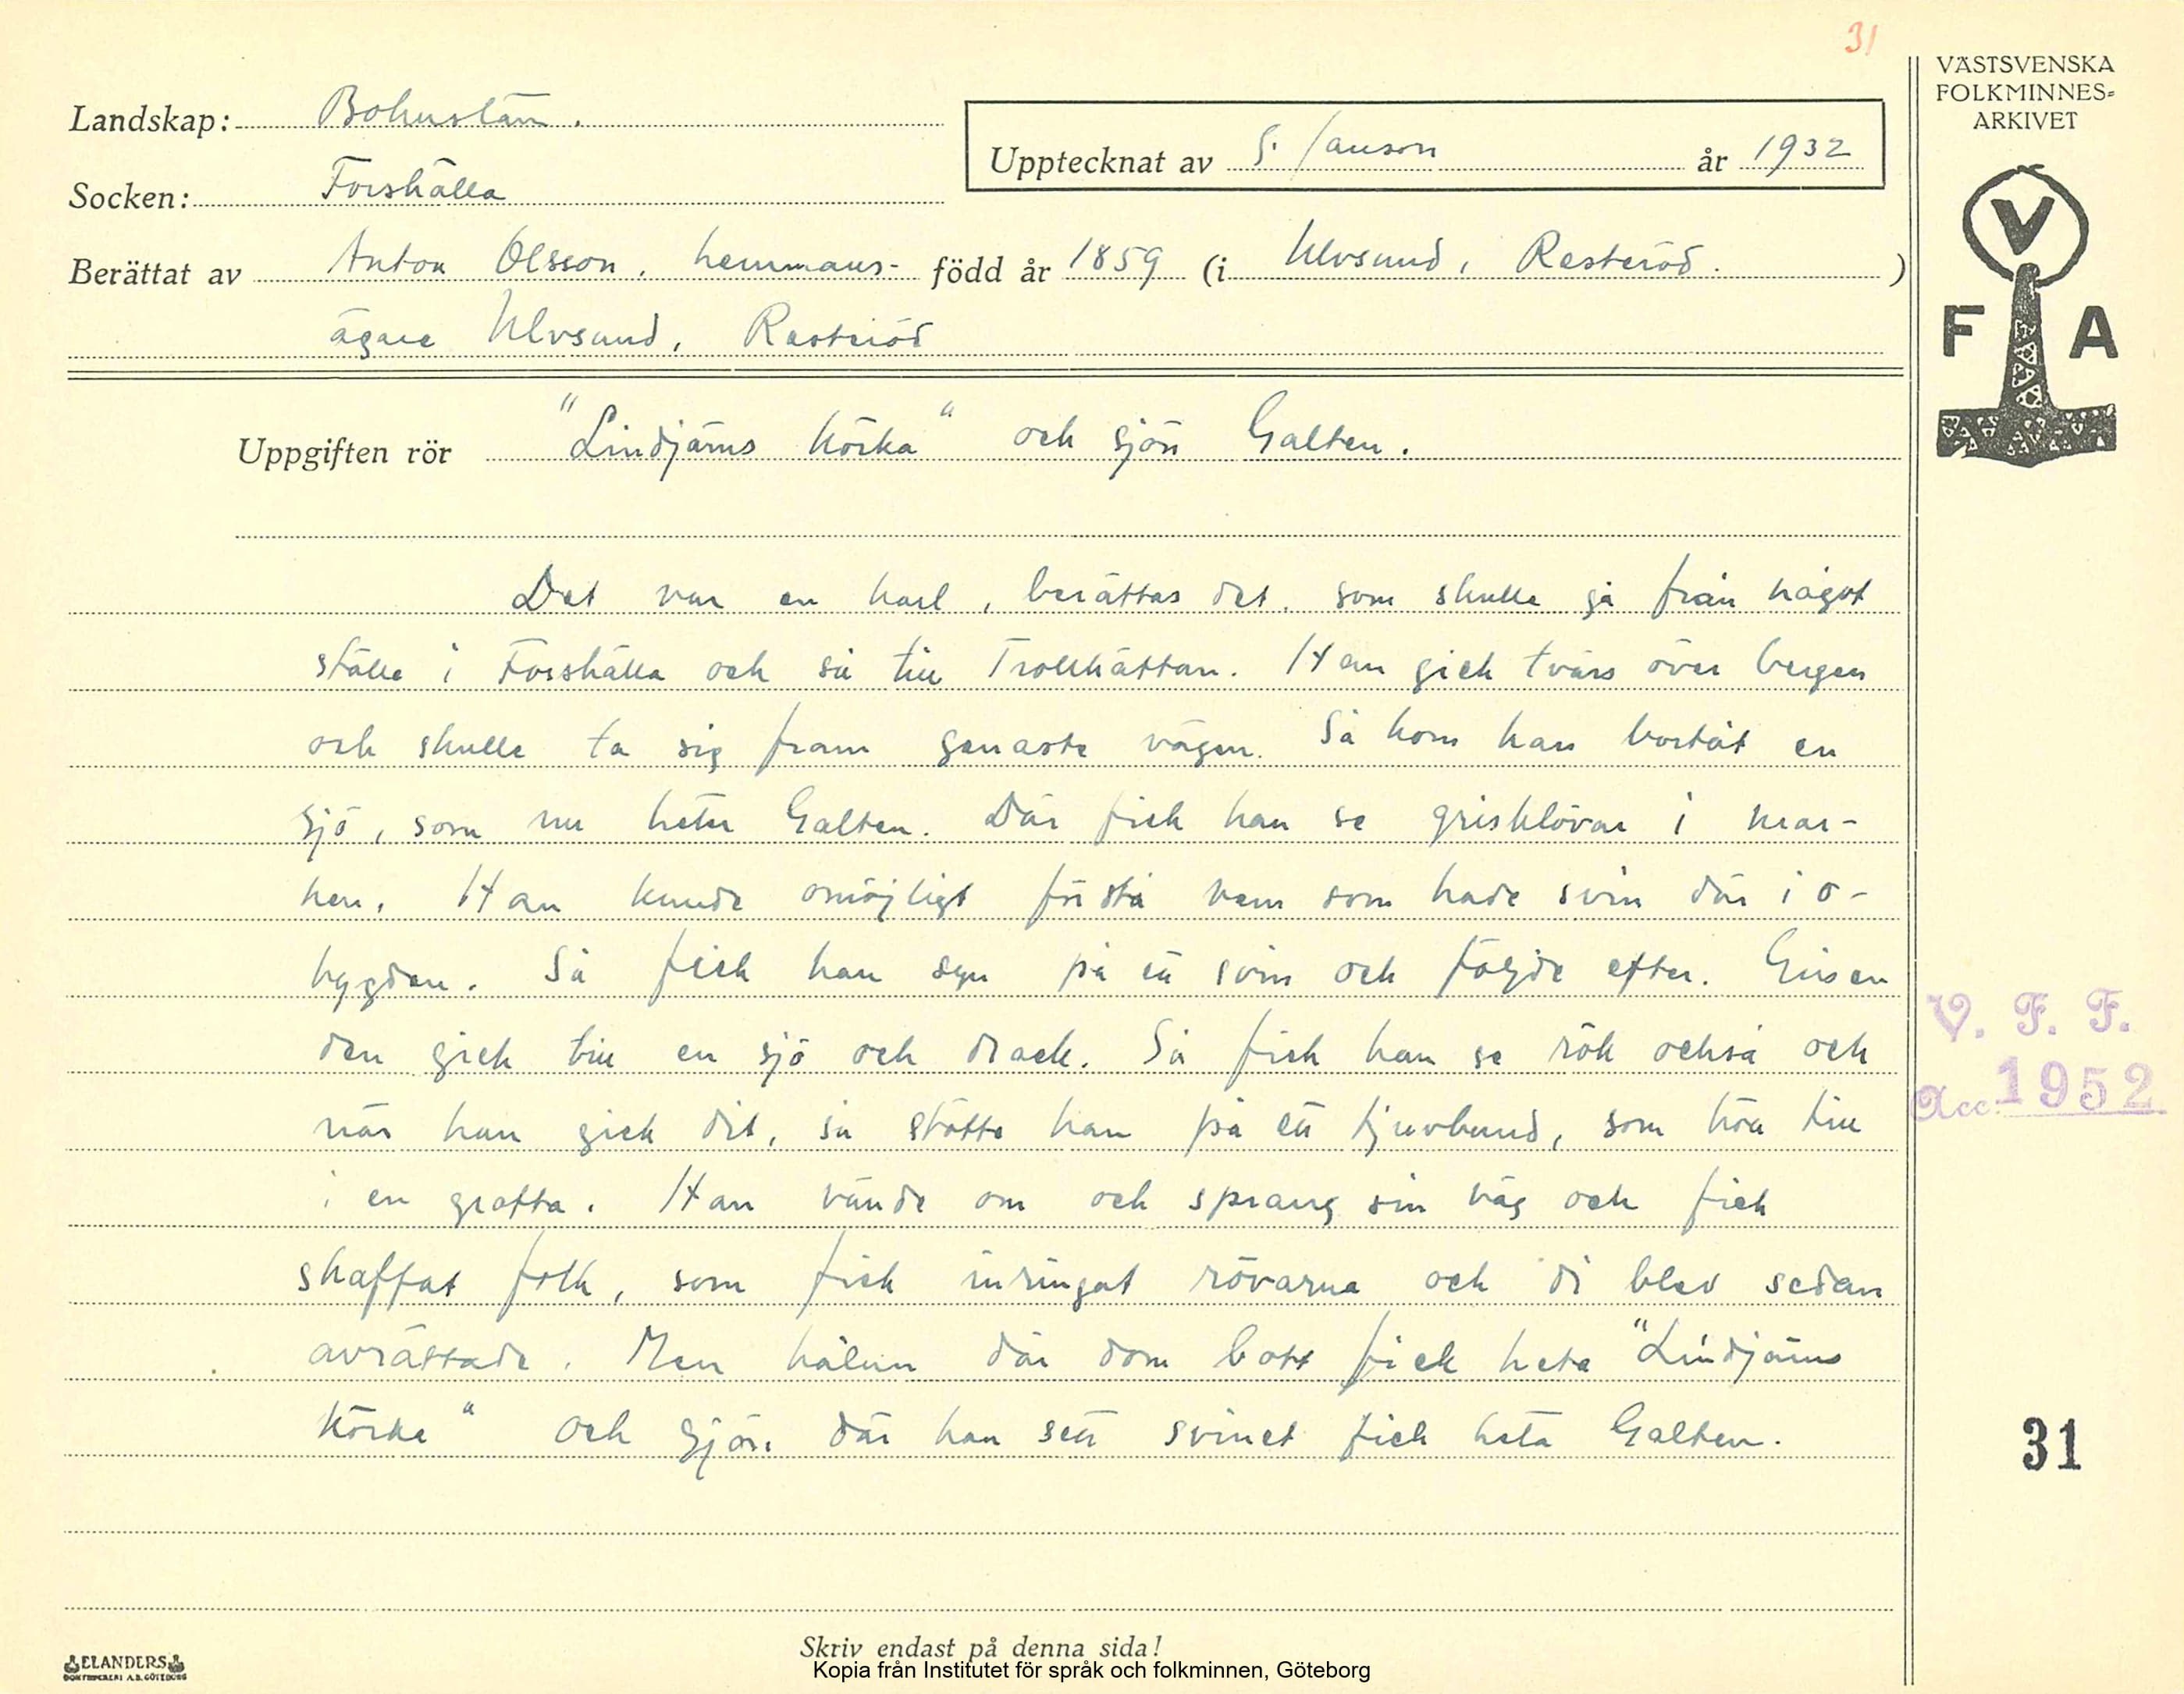 31
VÄSTSVENSKA
FOLKMINNES-
ARKIVET
Landskap: Bohuslän.
Upptecknat av S. Janson år 1932
Socken: Forshälla
Berättat av Anton Olsson, hemmans- född år 1859 (i Ulvsund, Resteröd.)
ägare Ulvsund, Resteröd
V
F A
Uppgiften rör "Lindjärns körka" och sjön Galten.
Det var en karl, berättas det, som skulle gå från något
ställe i Forshälla och så till Trollhättan. Han gick tvärs över bergen
och skulle ta sig fram genaste vägen. Så kom han bortåt en
sjö, som nu heter Galten. Där fick han se grisklövar i mar-
ken. Han kunde omöjligt förstå vem som hade svin där i o-
bygden. Så fick han syn på ett svin och följde efter. Grisen
den gick till en sjö och drack. Så fick han se rök också och
när han gick dit, så stötte han på ett tjuvband, som höll till
i en grotta. Han vände om och sprang sin väg och fick
skaffat folk, som fick inringat rövarna och di blev sedan
avrättade. Men hålan där dom bott fick heta "Lindjärns
körka" och sjön där han sett svinet fick heta Galten.
V. F. F.
Acc. 1952
31
Skriv endast på denna sida!
ELANDERS
BOKTRYCKERI A.B. GÖTEBORG
Kopia från Institutet för språk och folkminnen, Göteborg